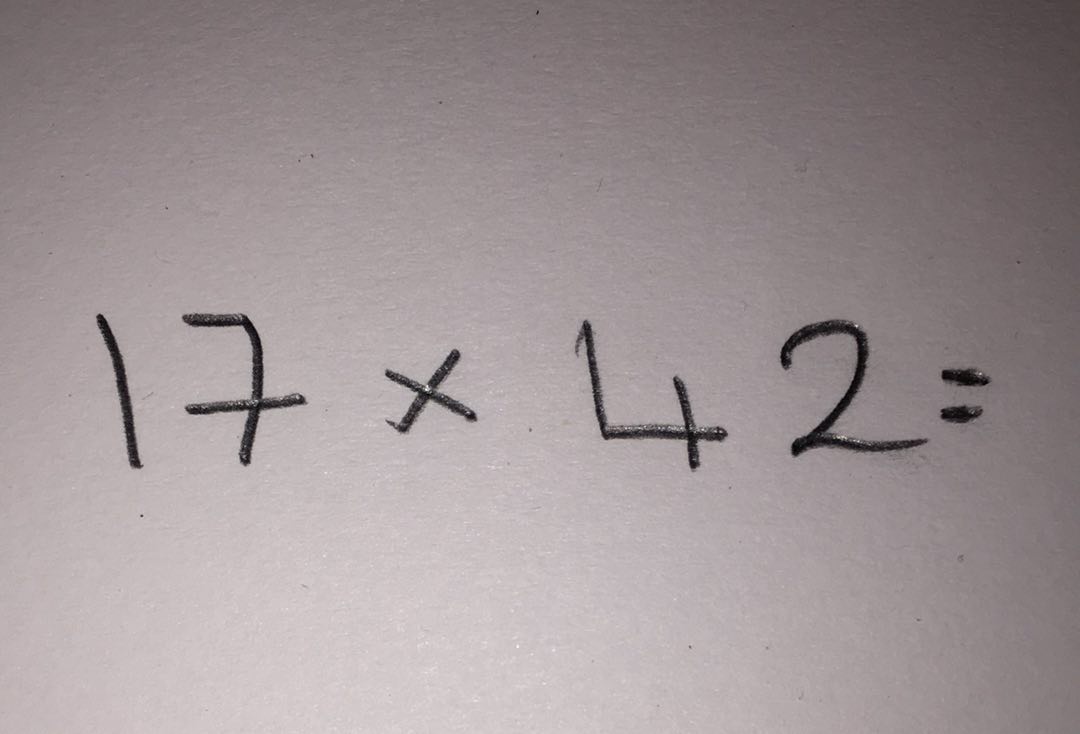 17 × 42 =